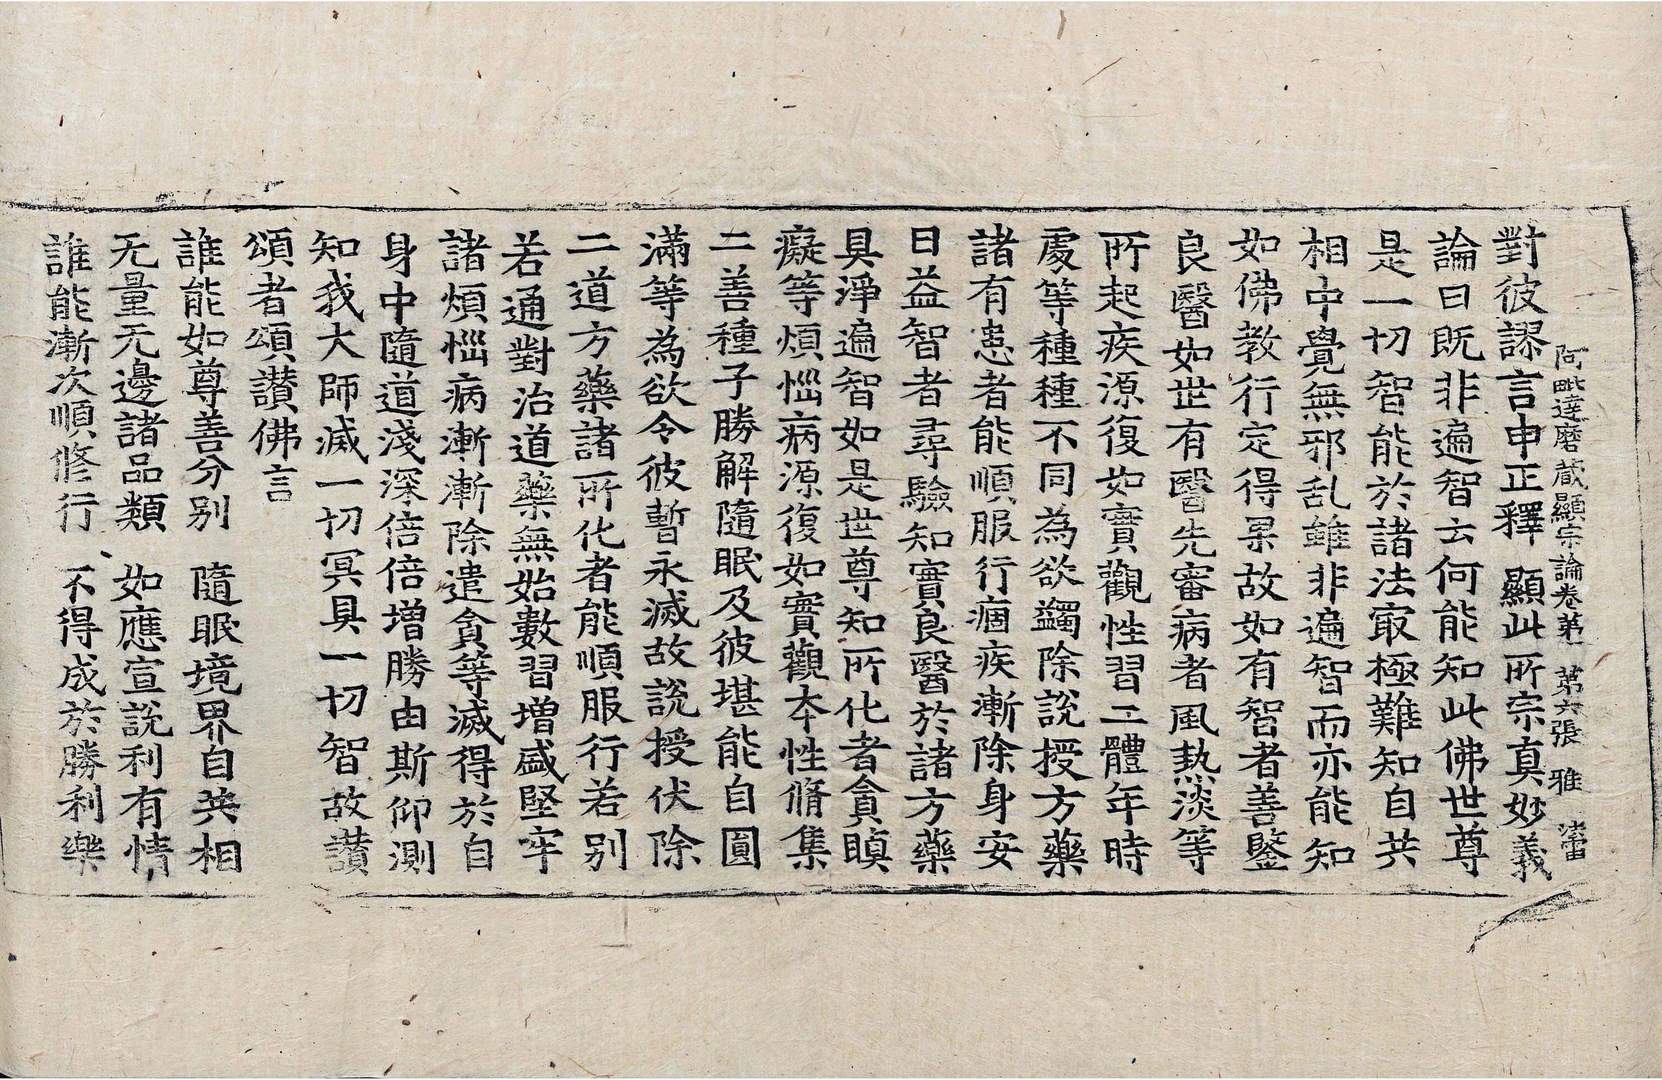 阿毗達磨蔵顯宗論卷第一 第六張 雅
對彼謬言申正釋 顯此所宗真妙義
論曰既非遍智云何能知此佛世尊
是一切智能於諸法㝡極難知自共
相中覺無邪乱雖非遍智而亦能知
如佛教行定得果故如有智者善鑒
良醫如世有醫先審病者風熱淡等
所起疾源復如實觀性習二體年時
處等種種不同為欲蠲除說授方藥
諸有患者能順服行痼疾漸除身安
日益智者尋驗知實良醫於諸方藥
具淨遍智如是世尊知所化者貪瞋
癡等煩惱病源復如實觀本性脩集
二善種子勝解隨眠及彼堪能自圓
滿等為欲令彼暫永滅故說授伏除
二道方藥諸所化者能順服行若別
若通對治道藥無始數習增盛堅牢
諸煩惱病漸漸除遣貪等滅得於自
身中隨道淺深倍倍增勝由斯仰測
知我大師滅一切冥具一切智故讃
頌者頌讃佛言
誰能如尊善分別 隨眠境界自共相
无量无邊諸品類 如應宣說利有情
誰能漸次順脩行 不得成於勝利樂